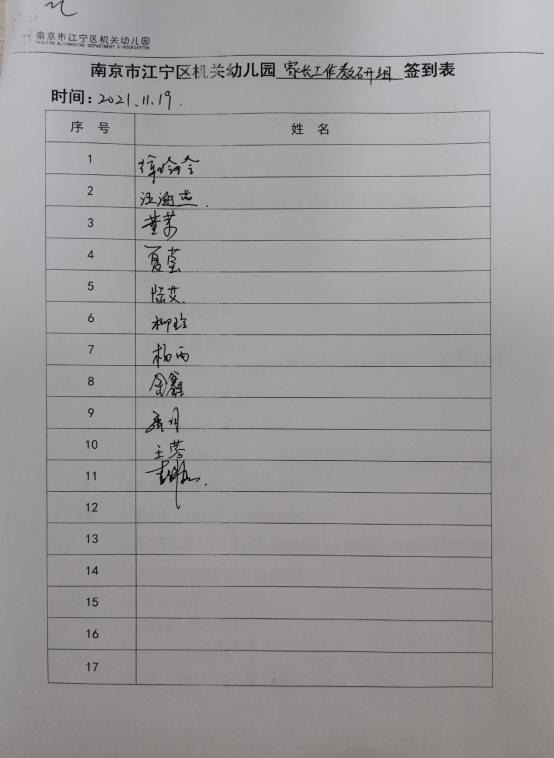 南京市江宁区机关幼儿园
NANJING JIANGNING DEPARTMENT KINDERGARTEN
南京市江宁区机关幼儿园 家长工作教研组 签到表
时间：2021.11.19.
序 号 姓 名
1
2 汪海燕.
3 黄莉
4 夏莹
5 陆艾.
6 柳玲
7 杨雨
8 金鑫
9
10 王蓉
11
12
13
14
15
16
17